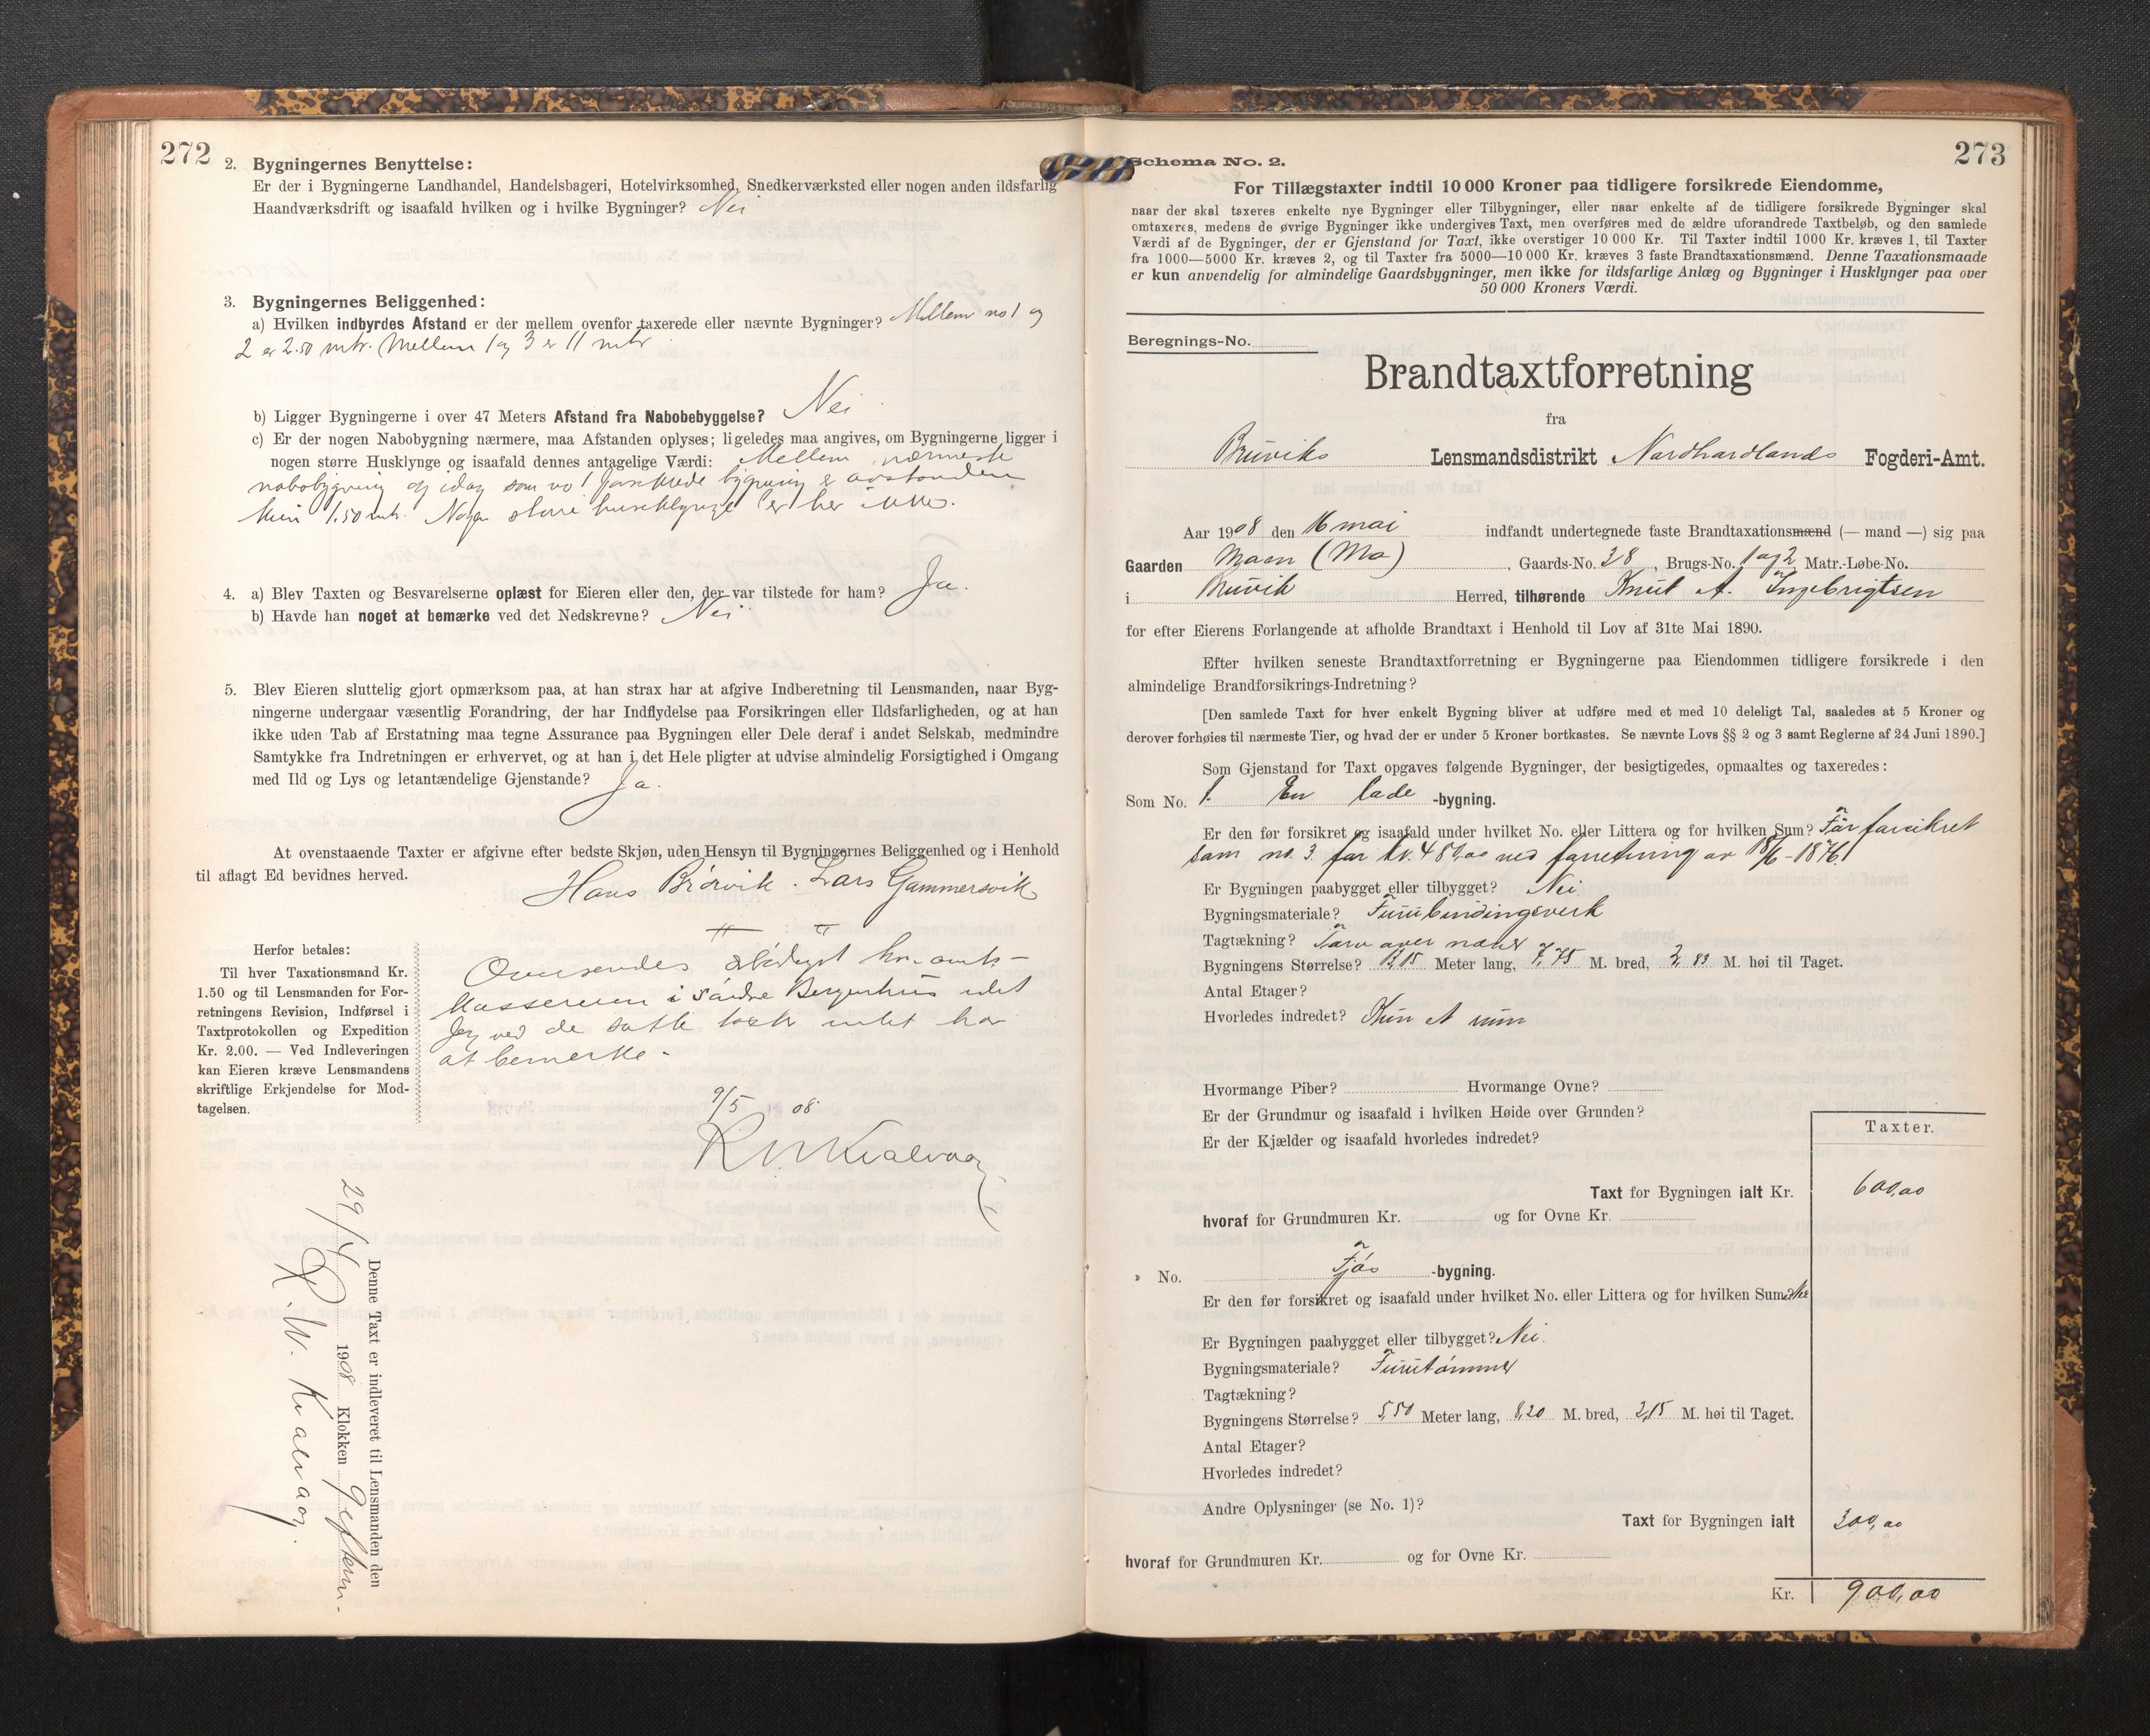 272
2. Bygningernes Benyttelse:
Er der i Bygningerne Landhandel, Handelsbageri, Hotelvirksomhed, Snedkerværksted eller nogen anden ildsfarlig
Haandværksdrift og isaafald hvilken og i hvilke Bygninger? Nei
3. Bygningernes Beliggenhed:
a) Hvilken indbyrdes Afstand er der mellem ovenfor taxerede eller nævnte Bygninger? Mellem no 1 og
2 er 2.50 mtr. Mellem 1 og 3 er 11 mtr
b) Ligger Bygningerne i over 47 Meters Afstand fra Nabobebyggelse? Nei
c) Er der nogen Nabobygning nærmere, maa Afstanden oplyses; ligeledes maa angives, om Bygningerne ligger i
nogen større Husklynge og isaafald dennes antagelige Værdi: Mellem nærmeste
nabobygning og idag som no 1 bygning er avstanden
kun 1.50 mtr. Nogen større husklynge er her ikke.
4. a) Blev Taxten og Besvarelserne oplæst for Eieren eller den, der var tilstede for ham? Ja.
b) Havde han noget at bemærke ved det Nedskrevne? Nei
5. Blev Eieren sluttelig gjort opmærksom paa, at han strax har at afgive Indberetning til Lensmanden, naar Byg-
ningerne undergaar væsentlig Forandring, der har Indflydelse paa Forsikringen eller Ildsfarligheden, og at han
ikke uden Tab af Erstatning maa tegne Assurance paa Bygningen eller Dele deraf i andet Selskab, medmindre
Samtykke fra Indretningen er erhvervet, og at han i det Hele pligter at udvise almindelig Forsigtighed i Omgang
med Ild og Lys og letantændelige Gjenstande? Ja.
At ovenstaaende Taxter er afgivne efter bedste Skjøn, uden Hensyn til Bygningernes Beliggenhed og i Henhold
til aflagt Ed bevidnes herved.
Hans Brørvik. Lars Gammersvik
Herfor betales:
Til hver Taxationsmand Kr.
1.50 og til Lensmanden for For-
retningens Revision, Indførsel i
Taxtprotokollen og Expedition
Kr. 2.00. — Ved Indleveringen
kan Eieren kræve Lensmandens
skriftlige Erkjendelse for Mod-
tagelsen.
Oversendes ærbødigst hr. amts-
kassereren i Søndre Bergenhus idet
Jeg ved de satte takster intet har
at bemerke.
9/5 08
R W Kvalvaag
Denne Taxt er indleveret til Lensmanden den
29/4 1908 Klokken 9 eftem.
R. W. Kvalvaag.
273
Schema No. 2.
For Tillægstaxter indtil 10 000 Kroner paa tidligere forsikrede Eiendomme,
naar der skal taxeres enkelte nye Bygninger eller Tilbygninger, eller naar enkelte af de tidligere forsikrede Bygninger skal
omtaxeres, medens de øvrige Bygninger ikke undergives Taxt, men overføres med de ældre uforandrede Taxtbeløb, og den samlede
Værdi af de Bygninger, der er Gjenstand for Taxt, ikke overstiger 10 000 Kr. Til Taxter indtil 1000 Kr. kræves 1, til Taxter
fra 1000—5000 Kr. kræves 2, og til Taxter fra 5000—10 000 Kr. kræves 3 faste Brandtaxationsmænd. Denne Taxationsmaade
er kun anvendelig for almindelige Gaardsbygninger, men ikke for ildsfarlige Anlæg og Bygninger i Husklynger paa over
50 000 Kroners Værdi.
Beregnings-No.
Brandtaxtforretning
fra
Bruviks Lensmandsdistrikt Nordhordlands Fogderi-Amt.
Aar 1908 den 16 mai indfandt undertegnede faste Brandtaxationsmænd (— mand —) sig paa
Gaarden Moen (Mo), Gaards-No. 38, Brugs-No. 1 og 2 Matr.-Løbe-No.
i Bruvik Herred, tilhørende Knut A. Ingebrigtsen
for efter Eierens Forlangende at afholde Brandtaxt i Henhold til Lov af 31te Mai 1890.
Efter hvilken seneste Brandtaxtforretning er Bygningerne paa Eiendommen tidligere forsikrede i den
almindelige Brandforsikrings-Indretning?
[Den samlede Taxt for hver enkelt Bygning bliver at udføre med et med 10 deleligt Tal, saaledes at 5 Kroner og
derover forhøies til nærmeste Tier, og hvad der er under 5 Kroner bortkastes. Se nævnte Lovs §§ 2 og 3 samt Reglerne af 24 Juni 1890.]
Som Gjenstand for Taxt opgaves følgende Bygninger, der besigtigedes, opmaaltes og taxeredes:
Som No. 1. En lade -bygning.
Er den før forsikret og isaafald under hvilket No. eller Littera og for hvilken Sum? Før forsikret
som no. 3. for kr. 480,00 ved forretning av 18/6-1876.
Er Bygningen paabygget eller tilbygget? Nei.
Bygningsmateriale? Furubindingsverk
Tagtækning? Torv over næver
Bygningens Størrelse? Meter lang, 7,75 M. bred, 2,83 M. høi til Taget.
Antal Etager?
Hvorledes indredet? Kun et rum
Hvormange Piber? Hvormange Ovne?
Er der Grundmur og isaafald i hvilken Høide over Grunden?
Er der Kjælder og isaafald hvorledes indredet?
Taxter.
Taxt for Bygningen ialt Kr. 600,00
hvoraf for Grundmuren Kr. og for Ovne Kr.
» No. Fjøs -bygning.
Er den før forsikret og isaafald under hvilket No. eller Littera og for hvilken Sum?
Er Bygningen paabygget eller tilbygget? Nei.
Bygningsmateriale? Furutømmer
Tagtækning?
Bygningens Størrelse? 5,50 Meter lang, 8,20 M. bred, 2,15 M. høi til Taget.
Antal Etager?
Hvorledes indredet?
Andre Oplysninger (se No. 1)?
Taxt for Bygningen ialt 300,00
hvoraf for Grundmuren Kr. og for Ovne Kr.
Kr. 900,00